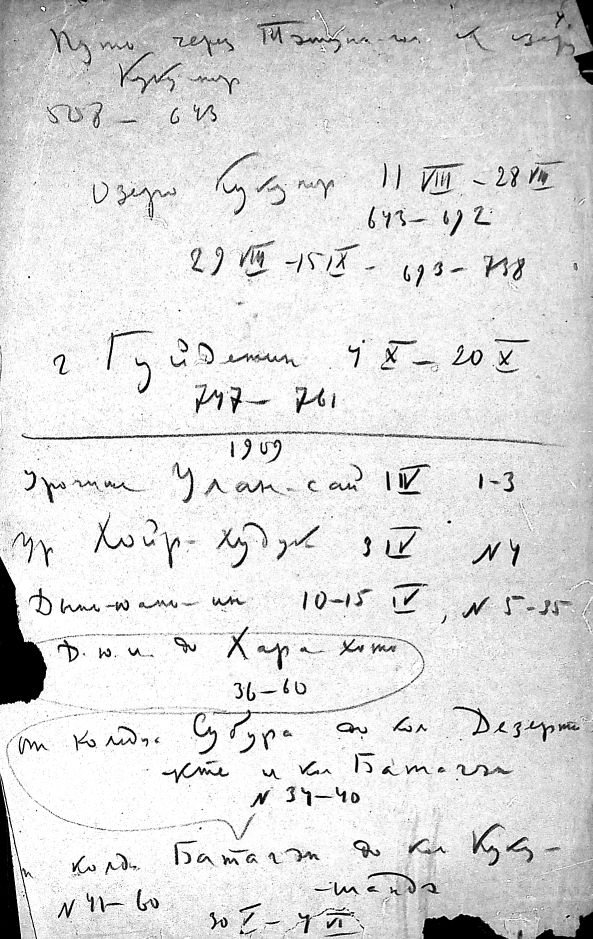 Путь через Тэтунг-гол к озеру
Куку-нор
508 – 643
Озеро Куку нор 11 VIII – 28 VIII
643 – 692
29 VIII – 15 IX – 693 – 738
г Гуйдетин 4 X – 20 X
747 – 761
1909
Урочище Улан-сай 1 IV 1-3
Ур Хойр-худук 3 IV N 4
10-15 IV, N 5-35
Д. ю. и. до Хара хото
36-60
от колодца Субура до кол Дезерте
кте и кол Батагэн
N 34-40
колд. Батагэн до кол Куку-
-шанда
N 41-60
30 V – 4 VI